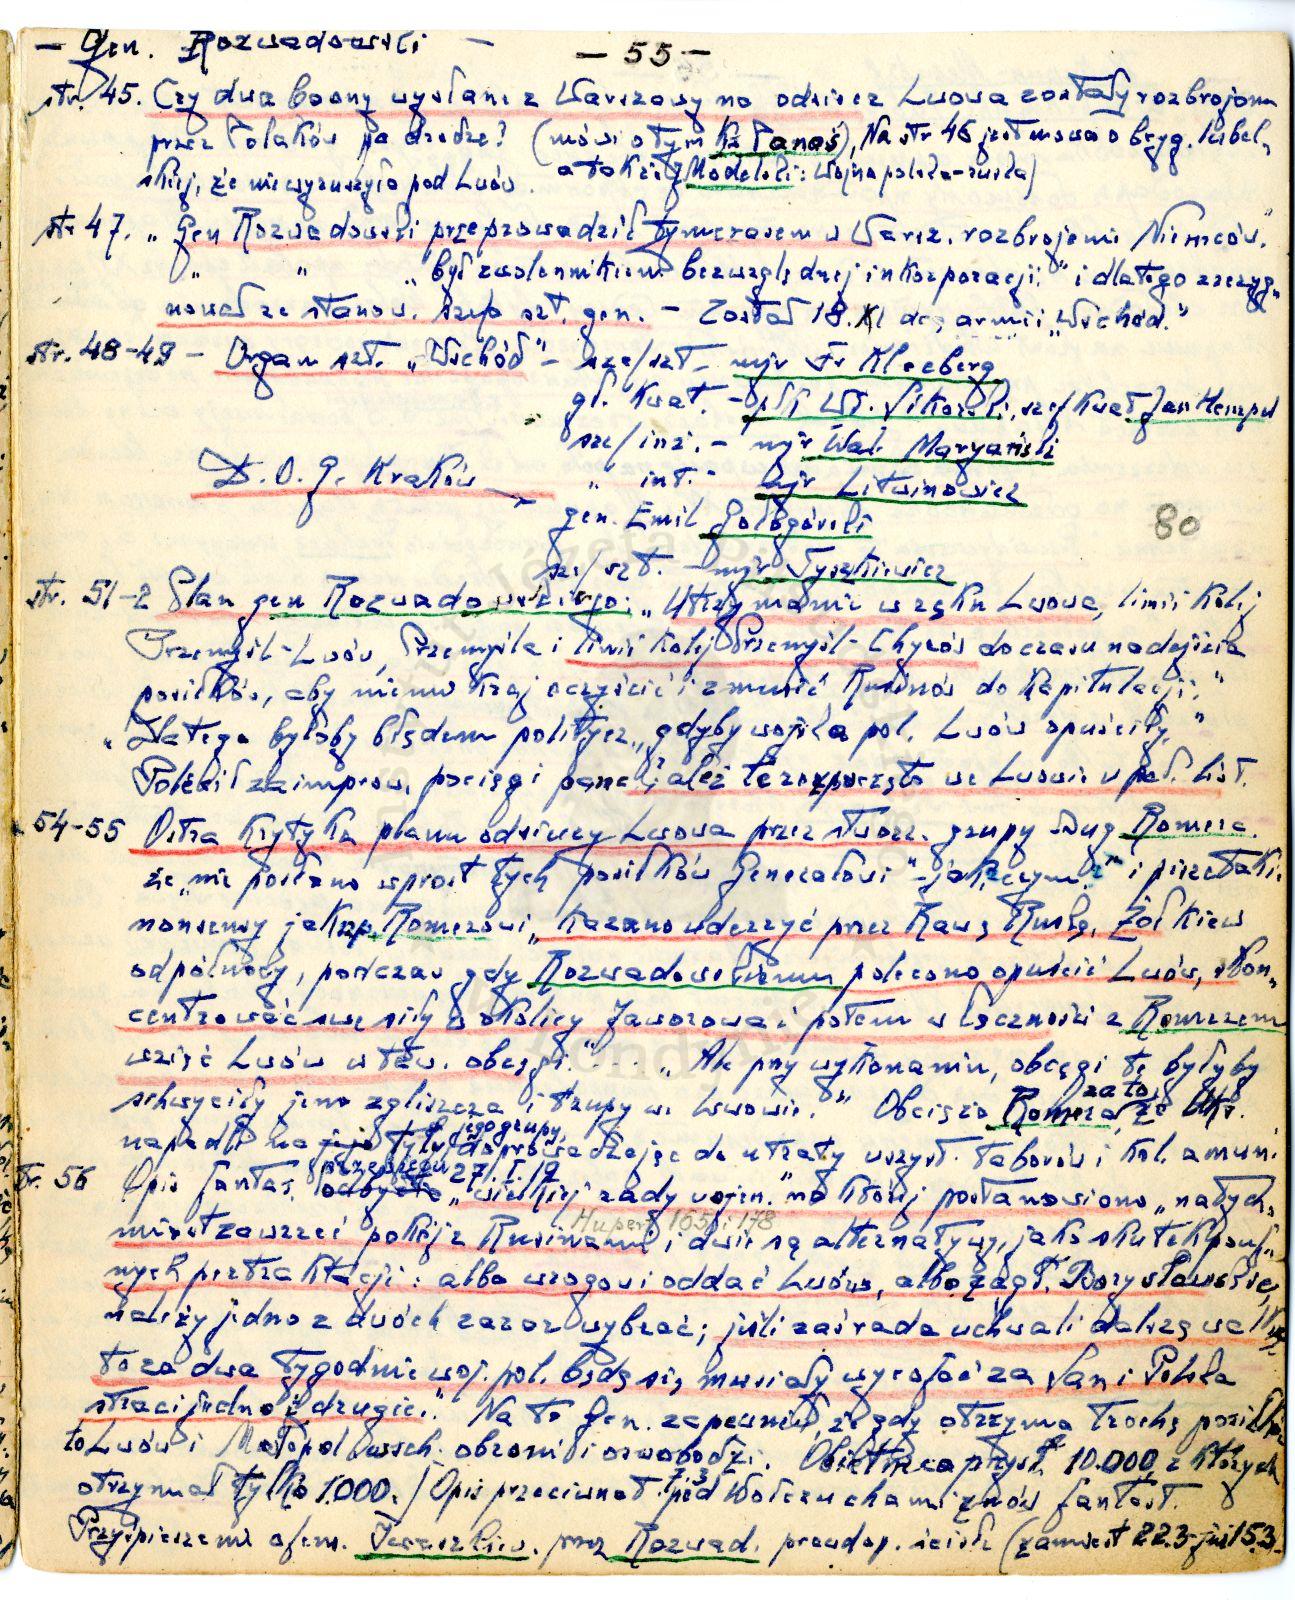 — Gen. Rozwadowski —
— 55 —
str. 45. Czy dwa baony wysłane z Warszawy na odsiecz Lwowa zostały rozbrojone
przez Polaków po drodze? (mówi o tym Kz Panaś), Na str 46 jest mowa o bryg. lubel-
skiej, że nie wyruszyła pod Lwów. a także Modelski: Wojna polsko-ruska)
str 47. „Gen Rozwadowski przeprowadził tymczasem w Warsz. rozbrojenie Niemców."
„ „ „był zwolennikiem bezwzględnej inkorporacji" i dlatego zrezyg-
nował ze stanow. szefa szt. gen. — Został 18.XI dcą armii „Wschód."
str. 48-49 — Organ szt. „Wschód" — szef szt — mjr Fr Kleeberg
gł. Kwat. — płk Wł. Sikorski, szef Kwat Jan Hempel
szef inż. — mjr Wal. Maryański
„ int. — mjr Litwinowicz
D.O.G. Kraków
gen. Emil Gołogórski
80
szef szt. — mjr Tyszkiewicz
str. 51-2 Plan gen Rozwadowskiego: „Utrzymanie w ręku Lwowa, linii kolej
Przemyśl-Lwów, Przemyśla i linii kolej Przemyśl-Chyrów do czasu nadejścia
posiłków, aby niemi kraj oczyścić i zmusić Rusinów do kapitulacji."
„Dlatego byłoby błędem politycz., gdyby wojska pol. Lwów opuściły."
Polecił zaimprow. pociągi panc., ależ te rozpoczęto we Lwowie w poł. List.
54-55 Ostra krytyka planu odsieczy Lwowa przez stworz. grupy Romera.
że „nie posłano wprost tych posiłków Generałowi" i pisze takie
nonsensy jak np. Romerowi „kazano uderzyć przez Rawę Ruską, Żółkiew
od północy, podczas gdy Rozwadowskiemu polecono opuścić Lwów, skon-
centrować swe siły w okolicy Jaworowa i potem w łączności z Romerem
wziąć Lwów w tzw. obcęgi." „Ale przy wykonaniu, obcęgi te byłyby
schwyciły jeno zgliszcza i trupy we Lwowie." Obciąża Romera za to, że Ukr.
napadli na tyły jego grupy doprowadzając do utraty wszyst. taborów i kol. amuni.
str. 56 Opis fantas. przebiegu 27.I.19 „wielkiej rady wojen." na której postanowiono „natych-
Hupert 165 i 178
miast zawrzeć pokój z Rusinami i dwie są alternatywy, jako skutek pouf-
nych pertraktacji: albo wrogowi oddać Lwów, albo zagł. Borysławskie,
należy jedno z dwóch zaraz wybrać; jeśli zaś rada uchwali dalszą walkę
to za dwa tygodnie woj. pol. będą się musiały wycofać za San i Polska
straci jedno i drugie." Na to Gen. zapewnił, że gdy otrzyma trochę posiłków
to Lwów i Małopol wsch. obroni i oswobodzi. Obietnica przysł. 10.000 z których
otrzymał tylko 1.000. / Opis przeciwnat. 7.3 pod Wołczuchami znów fantast.
Przyspieszenie ofen. Iwaszkiew. przez Rozwad. prawdop. ścisłe (zamiast 22.3 już 15.3